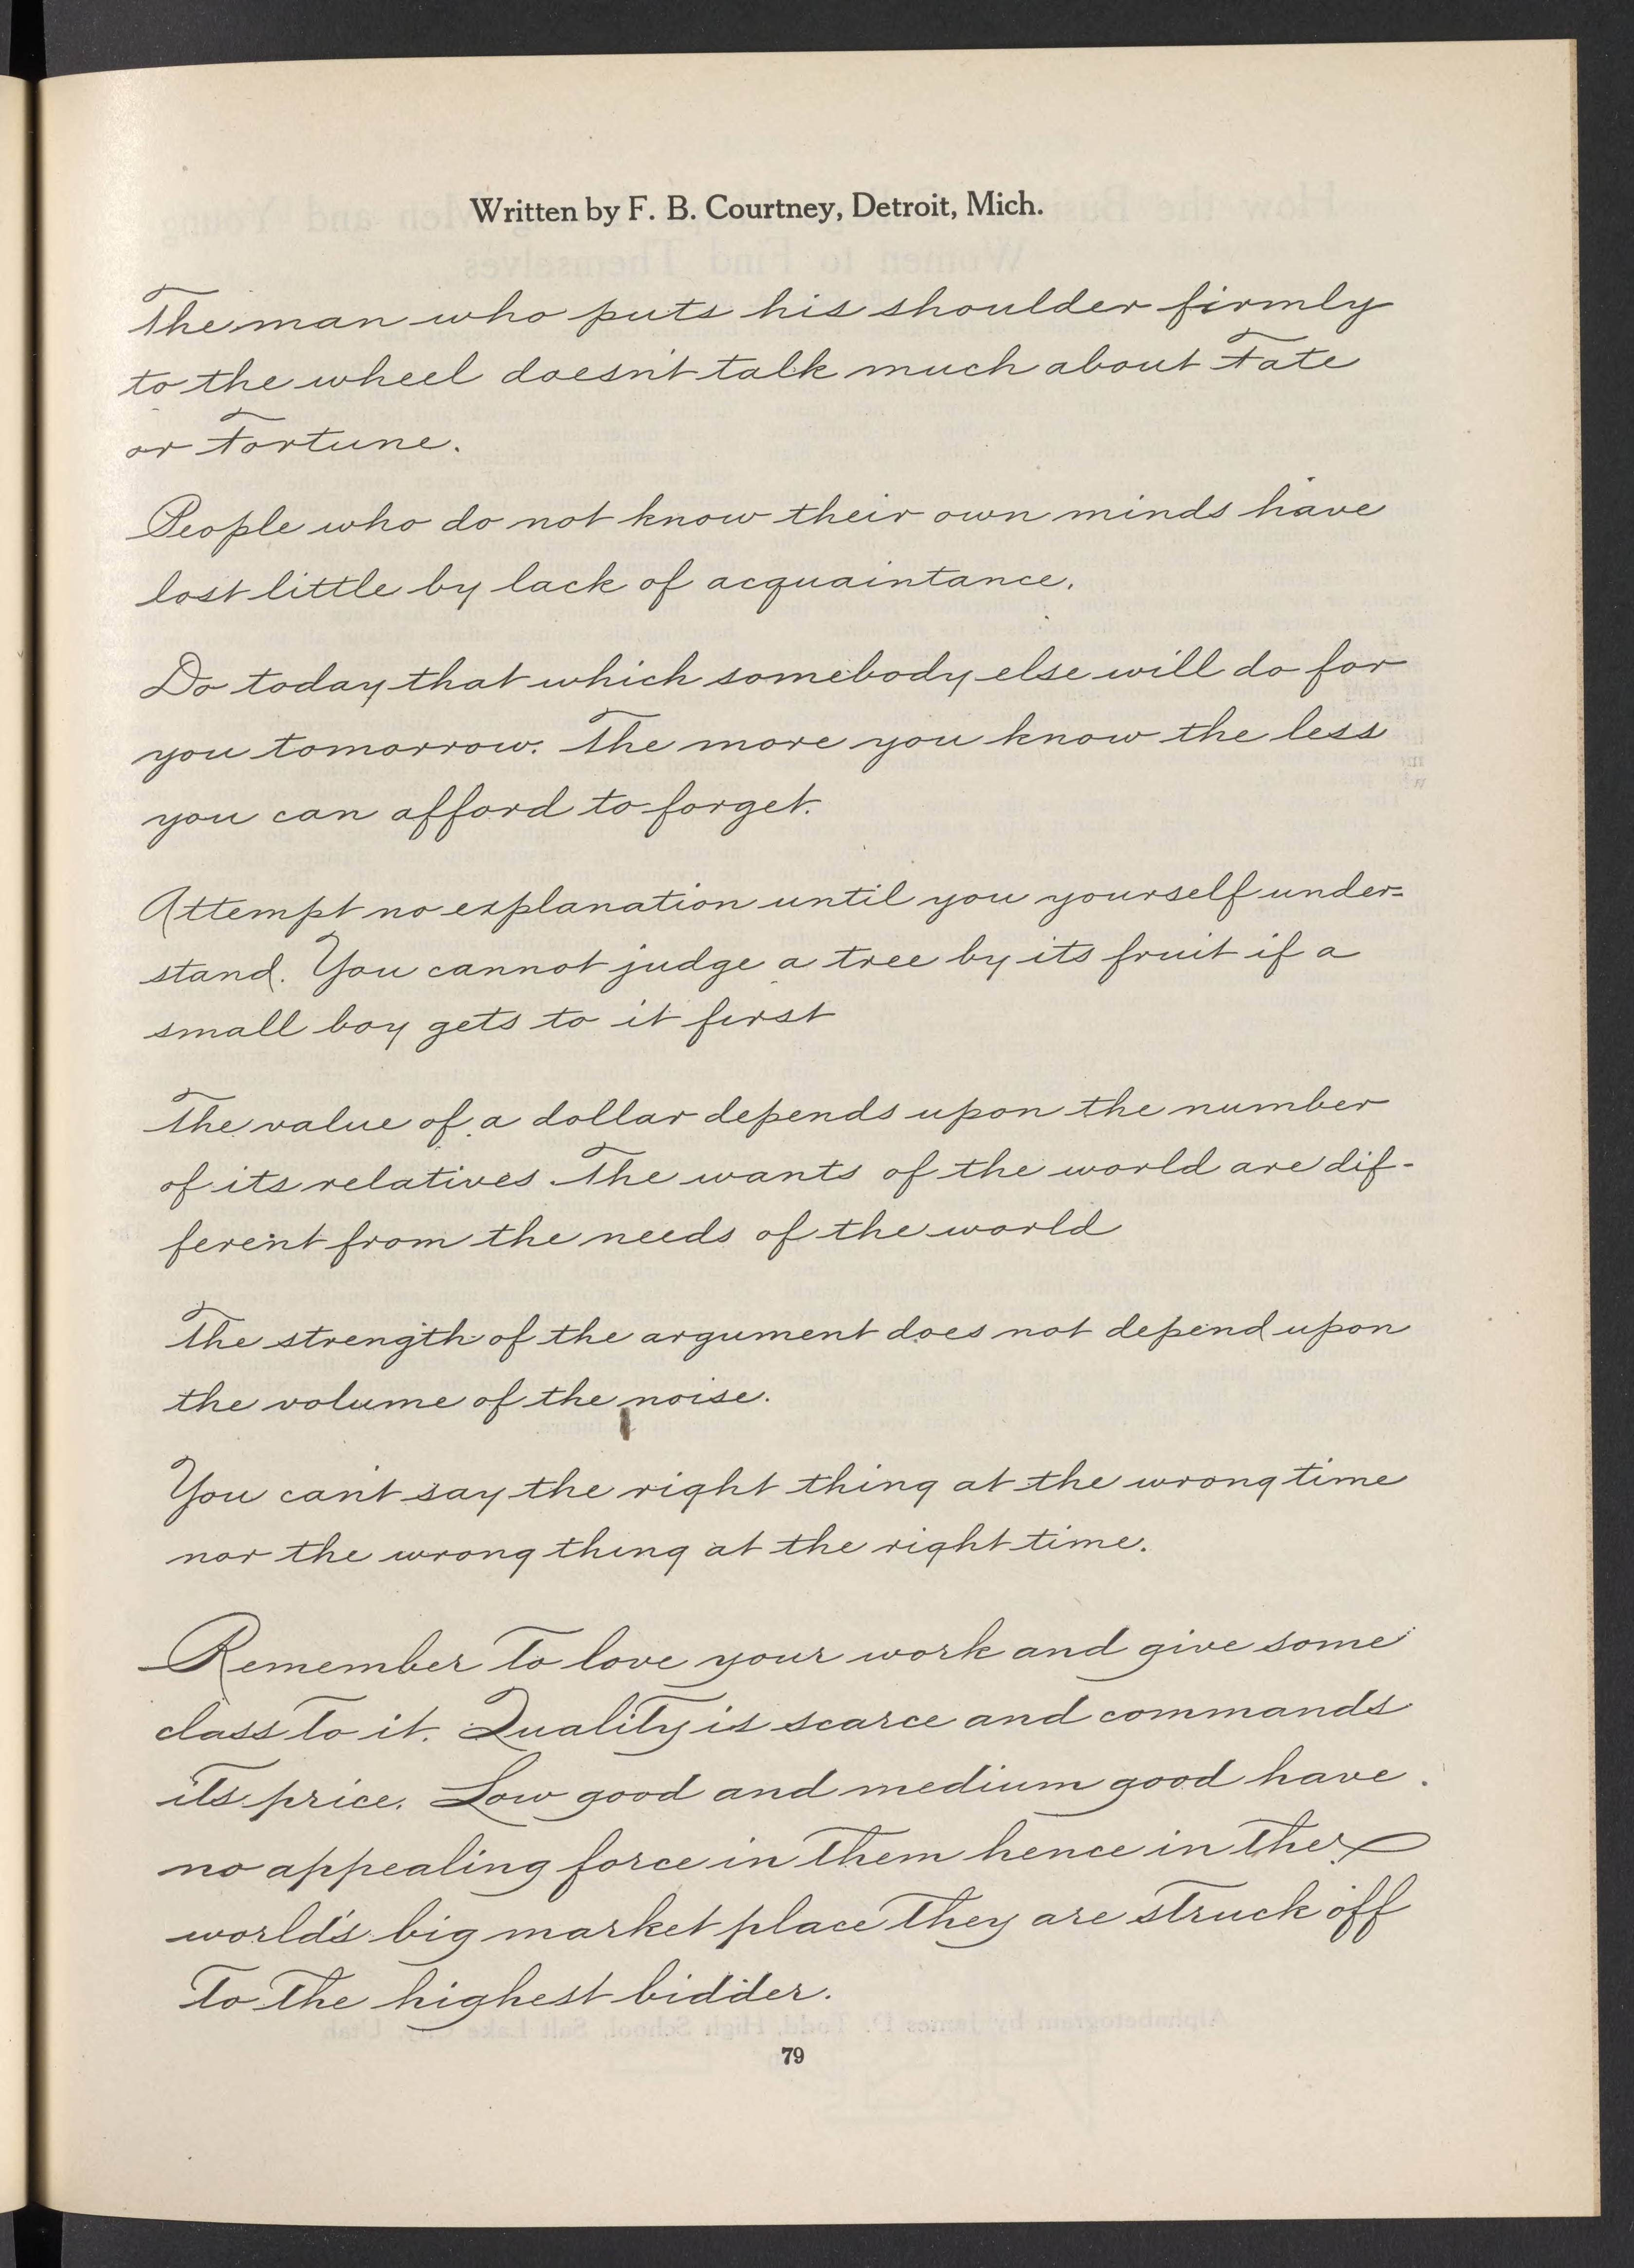 Written by F. B. Courtney, Detroit, Mich.
The man who puts his shoulder firmly
to the wheel doesn't talk much about Fate
or Fortune.
People who do not know their own minds have
lost little by lack of acquaintance.
Do today that which somebody else will do for
you tomorrow. The more you know the less
you can afford to forget.
Attempt no explanation until you yourself under=
stand. You cannot judge a tree by its fruit if a
small boy gets to it first
The value of a dollar depends upon the number
of its relatives. The wants of the world are dif-
ferent from the needs of the world
The strength of the argument does not depend upon
the volume of the noise.
You can't say the right thing at the wrong time
nor the wrong thing at the right time.
Remember to love your work and give some
class to it. Quality is scarce and commands
its price. Low good and medium good have
no appealing force in them hence in the
world's big market place they are struck off
to the highest bidder.
79